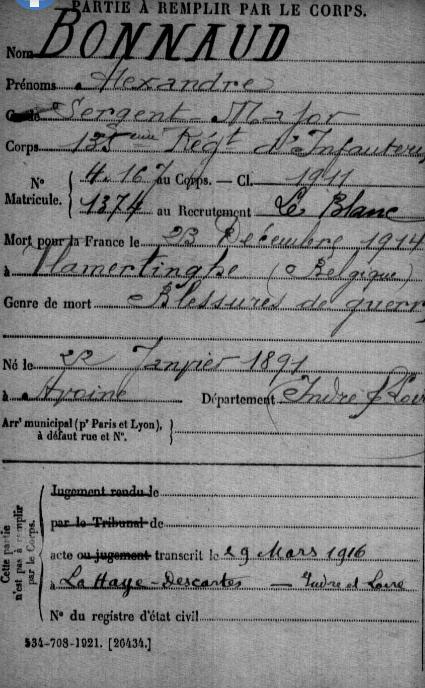 PARTIE À REMPLIR PAR LE CORPS.
Nom BONNAUD
Prénoms Alexandre
Grade Sergent-Major
Corps 135ème Régt d'Infanterie
N° Matricule. { 4.167 au Corps. — Cl. 1911
1374 au Recrutement Le Blanc
Mort pour la France le 23 Décembre 1914
à Vlamertinghe (Belgique)
Genre de mort Blessures de guerre
Né le 22 Janvier 1891
à Avoine Département Indre & Loire
Arrt municipal (pr Paris et Lyon), à défaut rue et N°. }
Cette partie n'est pas à remplir par le Corps.
Jugement rendu le
par le Tribunal de
acte ou jugement transcrit le 29 Mars 1916
à La Haye-Descartes — Indre et Loire
N° du registre d'état civil
534-708-1921. [26434.]